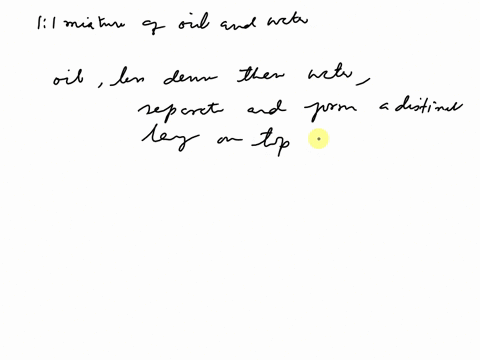 1:1 mixture of oil and water
oil, less dense then water,
separate and form a distinct
layer on top